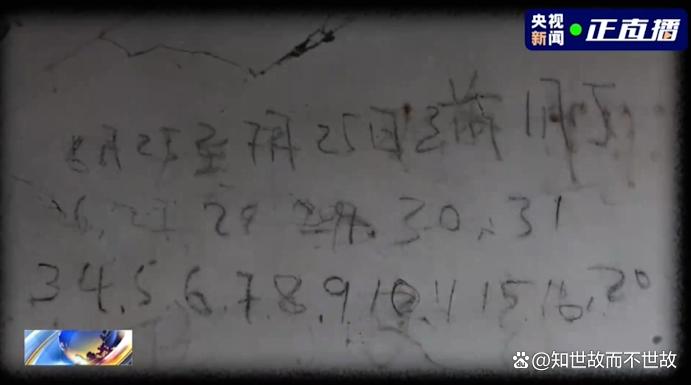 央视新闻 正直播
月25至7月25日 1月5
6. 27. 29 30. 31
34.5 6.7.8.9 10.11 15.16.20
@知世故而不世故